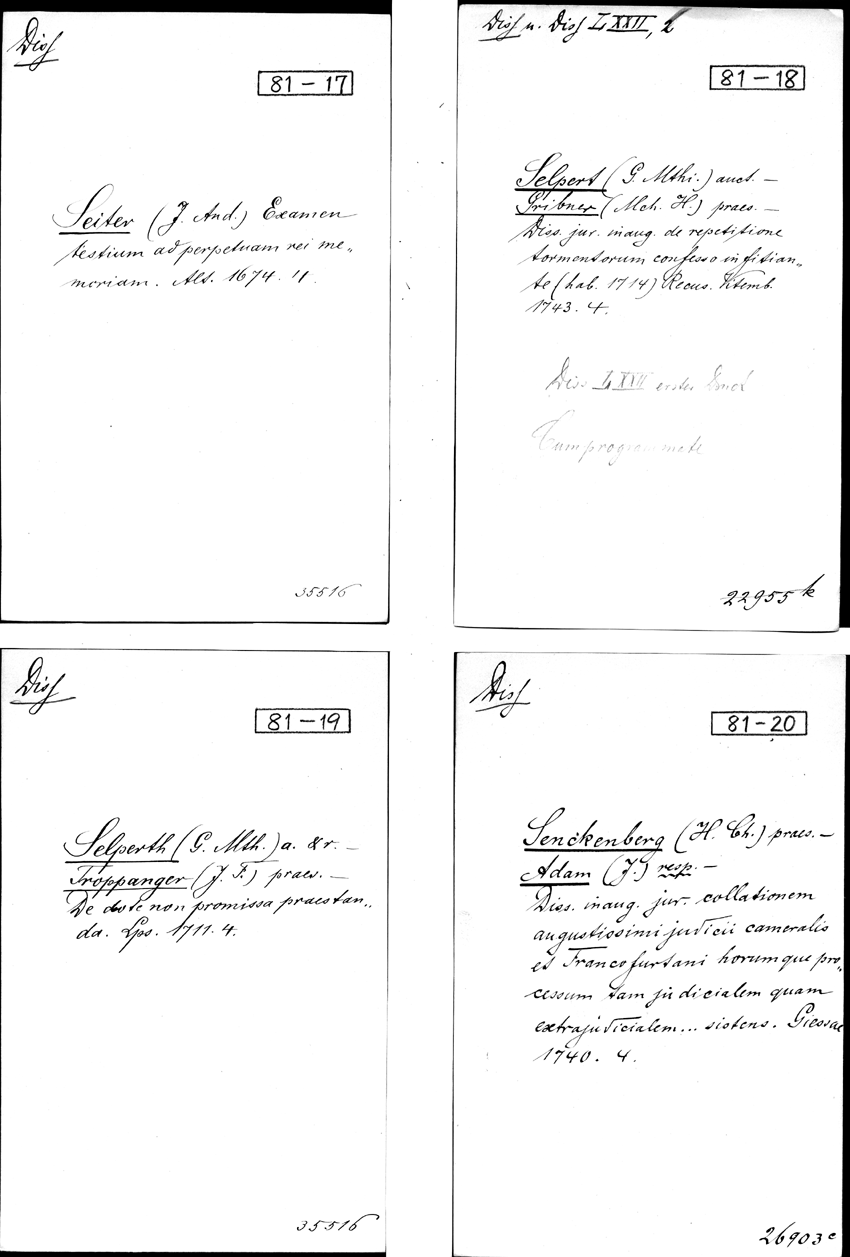 Diss
81-17
Seiter (J. And.) Examen
testium ad perpetuam rei me„
moriam. Alt. 1674. 4.
35516
Diss u. Diss LXXII, 2
81-18
Selpert (G. Mthi.) auct. —
Gribner (Mch. H.) praes. —
Diss. jur. inaug. de repetitione
tormentorum confesso in fitian„
te (hab. 1714) Recus. Vitemb.
1743. 4.
Diss LXXII erster Druck
Cum programmate
22955k
Diss
81-19
Selperth (G. Mth.) a. & r. —
Troppanger (J. F.) praes. —
De dote non promissa praestan„
da. Lps. 1711. 4.
35516
Diss
81-20
Senckenberg (H. Ch.) praes. —
Adam (J.) resp. —
Diss. inaug. jur. collationem
augustissimi judicii cameralis
et Francofurtani horumque pro„
cessum tam judicialem quam
extrajudicialem... sistens. Giessae
1740. 4.
26903c